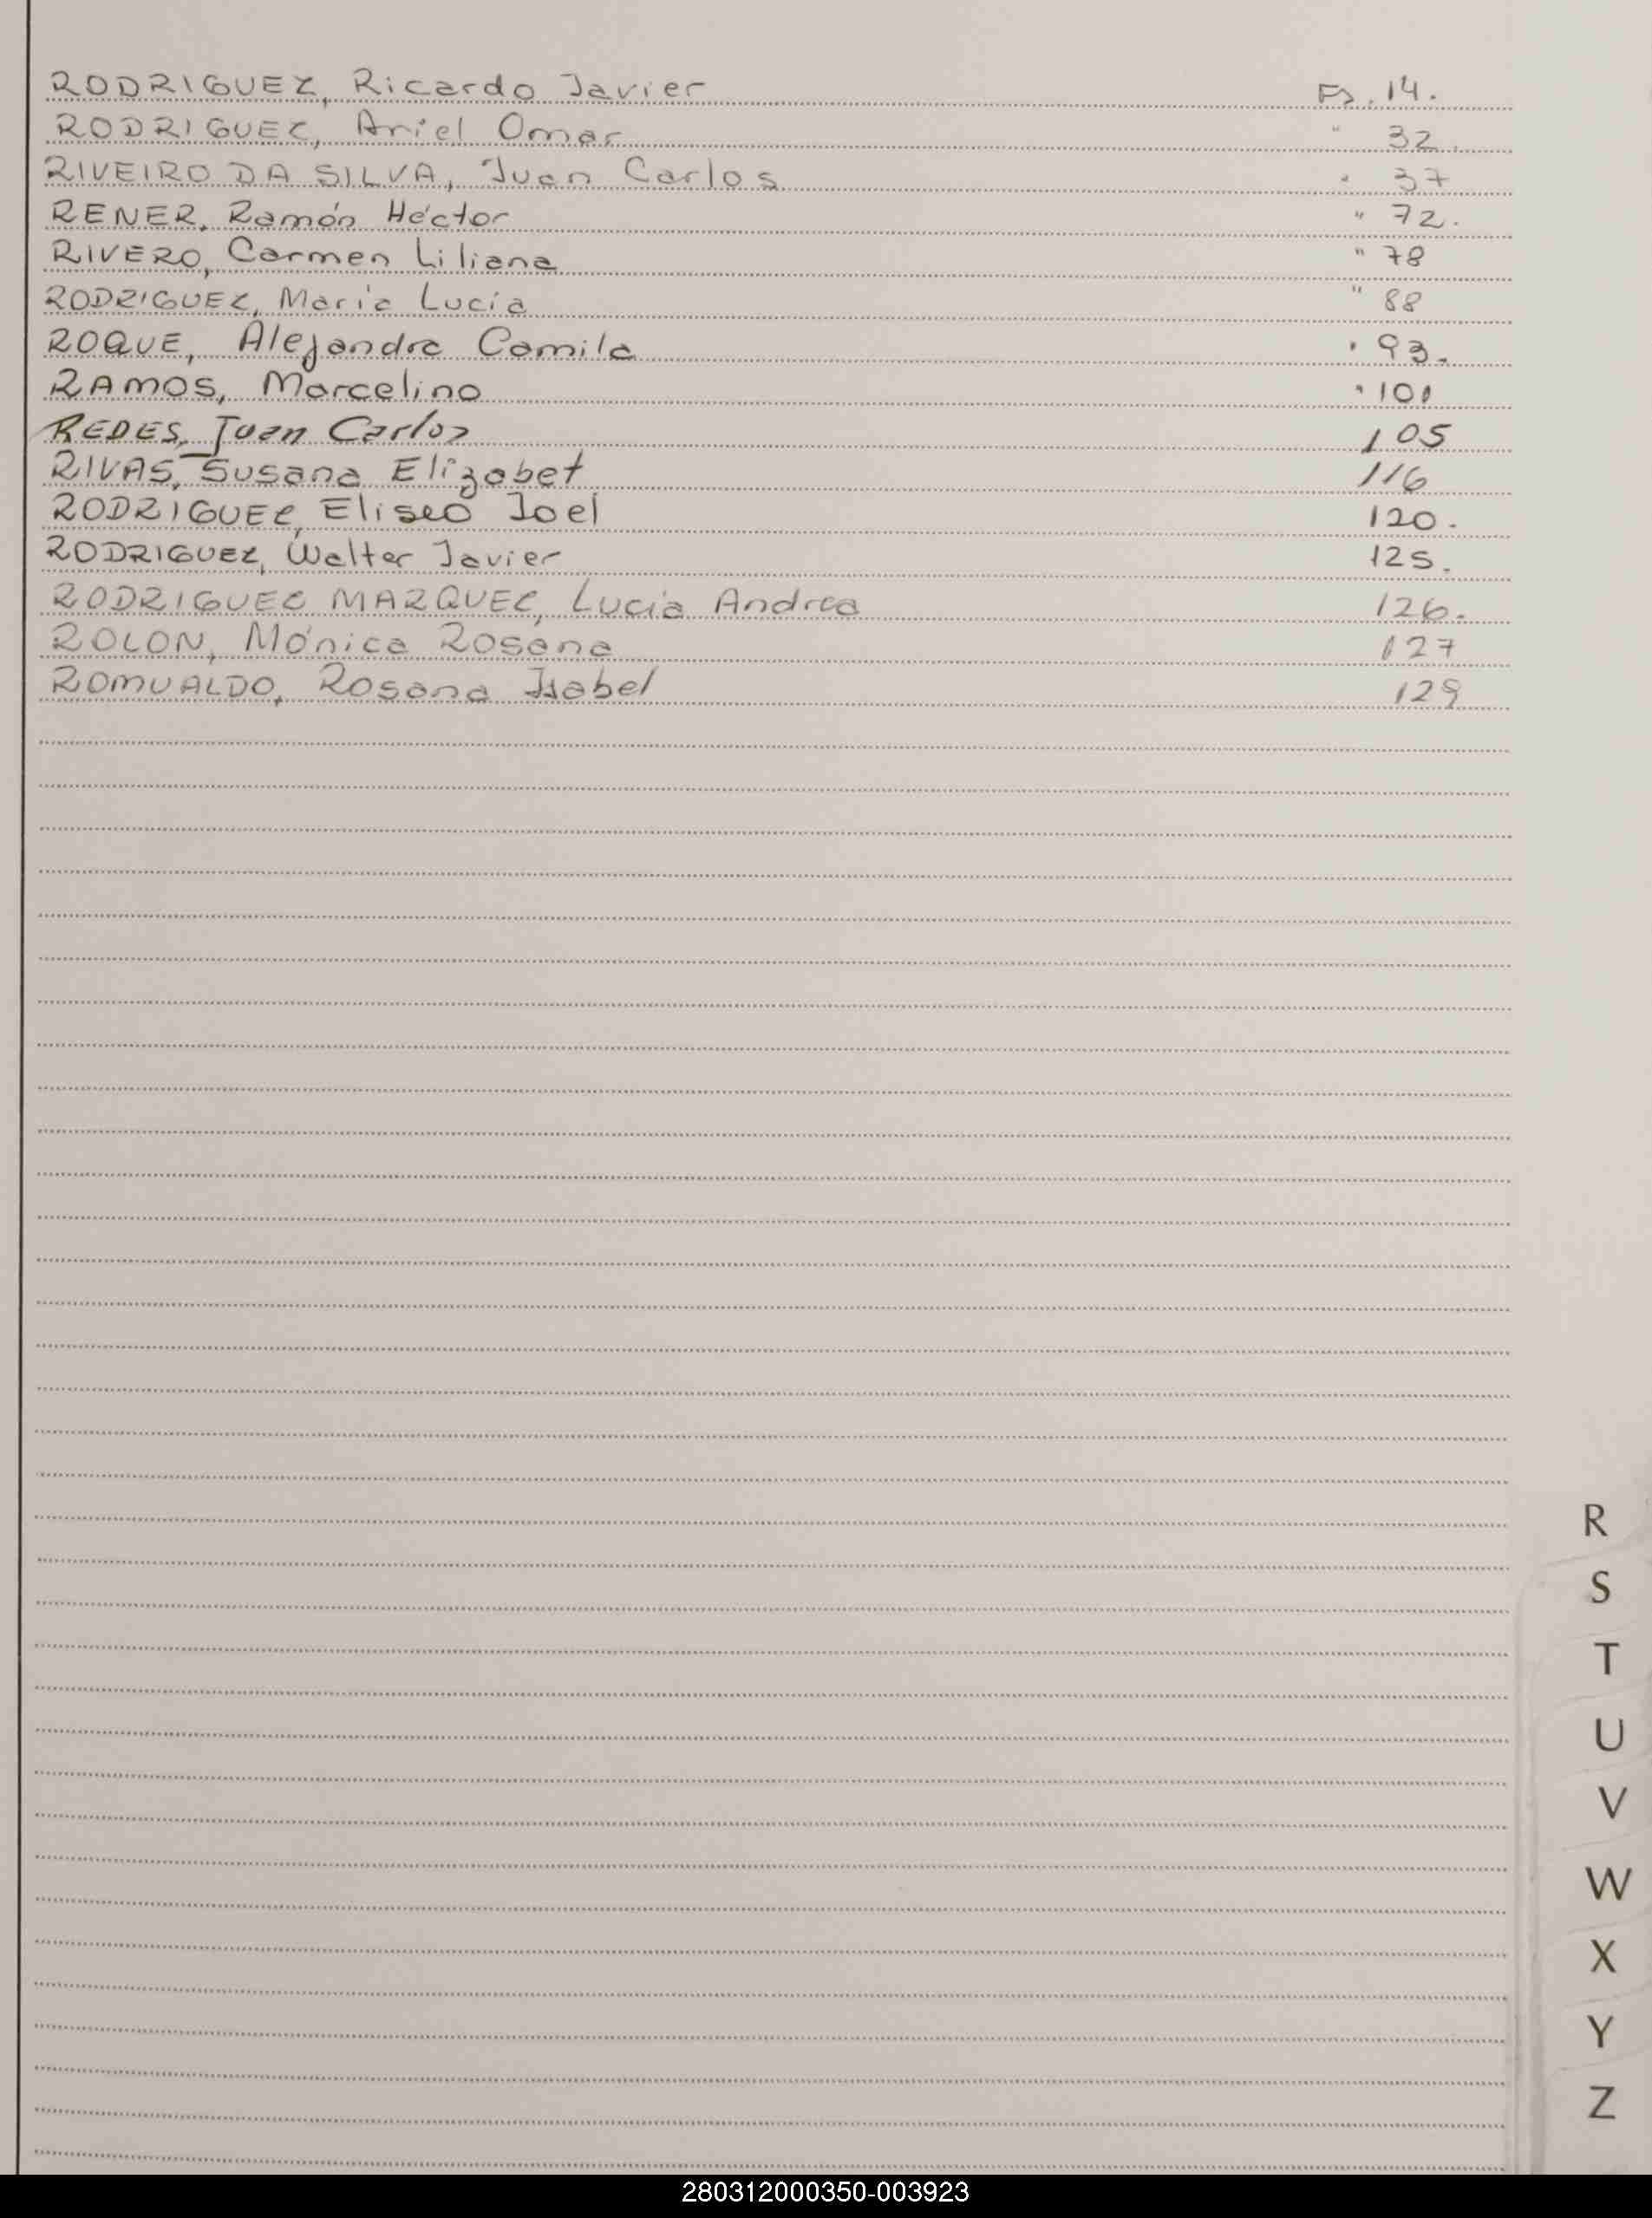 RODRIGUEZ, Ricardo Javier Fs. 14.
RODRIGUEZ, Ariel Omar " 32.
RIVEIRO DA SILVA, Juan Carlos " 37
RENER, Ramón Héctor " 72.
RIVERO, Carmen Liliana " 78
RODRIGUEZ, María Lucía " 88
ROQUE, Alejandra Camila " 93.
RAMOS, Marcelino " 101
REDES, Juan Carlos 105
RIVAS, Susana Elizabet 116
RODRIGUEZ, Eliseo Joel 120.
RODRIGUEZ, Walter Javier 125.
RODRIGUEZ MARQUEZ, Lucía Andrea 126.
ROLON, Mónica Rosana 127
ROMUALDO, Rosana Isabel 129
R
S
T
U
V
W
X
Y
Z
280312000350-003923